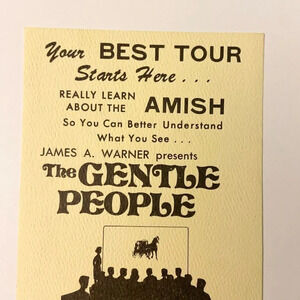 Your BEST TOUR
Starts Here . . .
REALLY LEARN
ABOUT THE AMISH
So You Can Better Understand
What You See . . .
JAMES A. WARNER presents
The GENTLE
PEOPLE